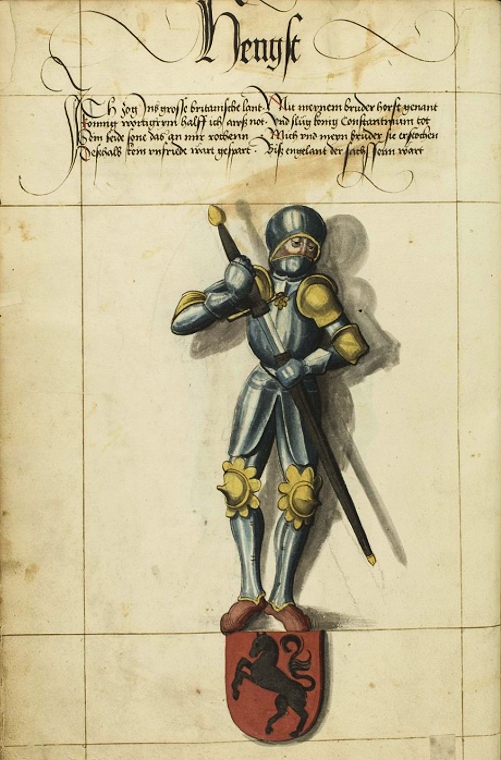 Hengst
Ich zog Ins grosse britanische lant Mit meynem bruder horst genant
konnig wortigerim halff ich auß not Vnd slug konig Constantinum tot
Dem beide sone das an mir rochenn Mich vnd meyn bruder sie erstochen
Deßhalb kein vnfride wart gespart Biß engelant der sachssenn wart